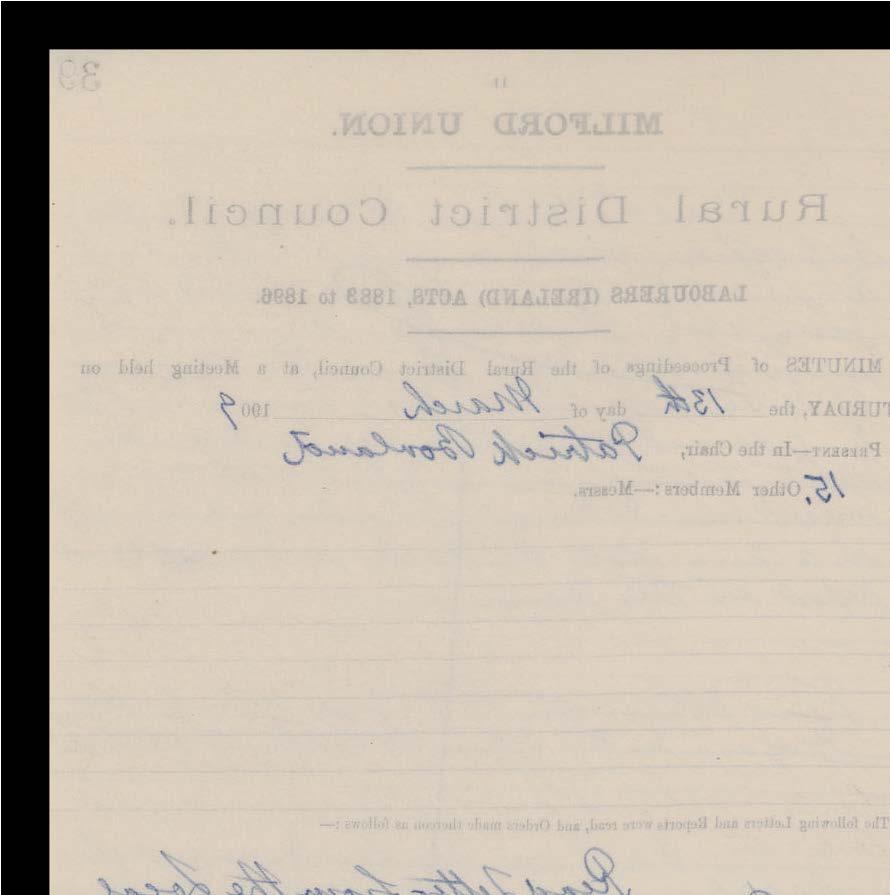 39
11
MILFORD UNION.
Rural District Council.
LABOURERS (IRELAND) ACTS, 1883 to 1896.
MINUTES of Proceedings of the Rural District Council, at a Meeting held on
TURDAY, the 13th day of March 1909
PRESENT—In the Chair, Patrick Borland
15, Other Members:—Messrs.
The following Letters and Reports were read, and Orders made thereon as follows:—
Read letter from the Local